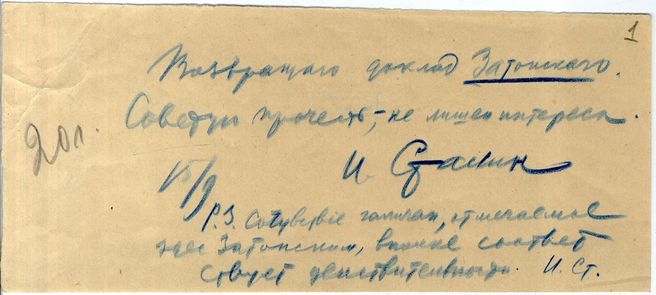 1
Возвращаю доклад Затонского.
Советую прочесть, – не лишен интереса.
20 г.
15/9 И. Сталин
P.S. Сочувствие галичан, отмечаемое
здес Затонским, вполне соответ
ствует действительности. И. Ст.